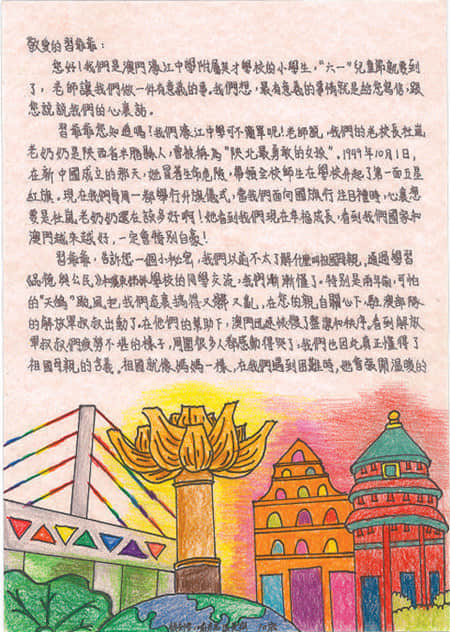 敬爱的習爺爺：
您好！我們是澳門濠江中學附屬英才學校的小學生，"六一"兒童節就要到
了，老師讓我們做一件有意義的事。我們想，最有意義的事情就是給您寫信，跟
您說說我們的心裏話。
習爺爺您知道嗎？我們濠江中學可不簡單呢！老師說，我們的老校長杜嵐
老奶奶是陝西省米脂縣人，曾被稱為"陝北最勇敢的女孩"。1949年10月1日，
在新中國成立的那天，她冒着生命危險，帶領全校師生在學校升起了第一面五星
紅旗。現在我們每周一都舉行升旗儀式，當我們面向國旗行注目禮時，心裏想
要是杜嵐老奶奶還在該多好啊！她看到我們現在幸福成長，看到我們國家和
澳門越來越好，一定會特別自豪！
習爺爺，告訴您一個小秘密，我們以前不太了解什麼叫祖國母親，通過學習
《品德與公民》學校的同學交流，我們漸漸懂了。特別是兩年前，可怕
的"天鴿"颱風把我們家裏搞得又髒又亂，在您的親自關心下，駐澳部隊
的解放軍叔叔出動了。在他們的幫助下，澳門迅速恢復了整潔和秩序。看到解放
軍叔叔們疲勞不堪的樣子，周圍很多人都感動得哭了；我們也因此真正懂得了
祖國母親的含義。祖國就像媽媽一樣，在我們遇到困難時，她會張開溫暖的